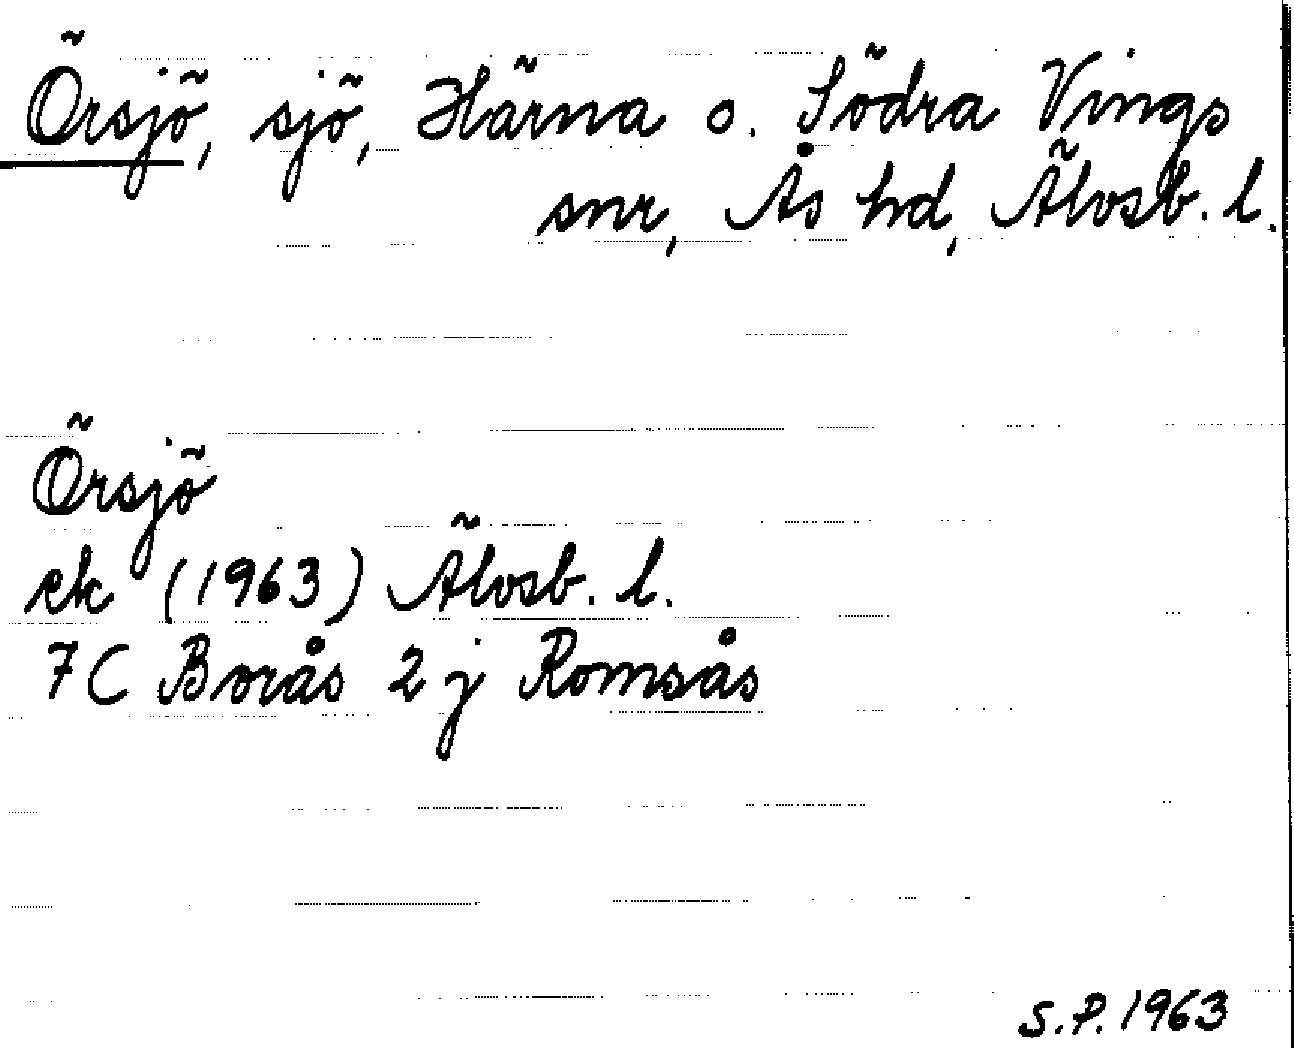 Örsjö, sjö, Härna o. Södra Vings
snr, Ås hd, Älvsb. l.
Örsjö
ek (1963) Älvsb. l.
7C Borås 2 j Romsås
S.P. 1963